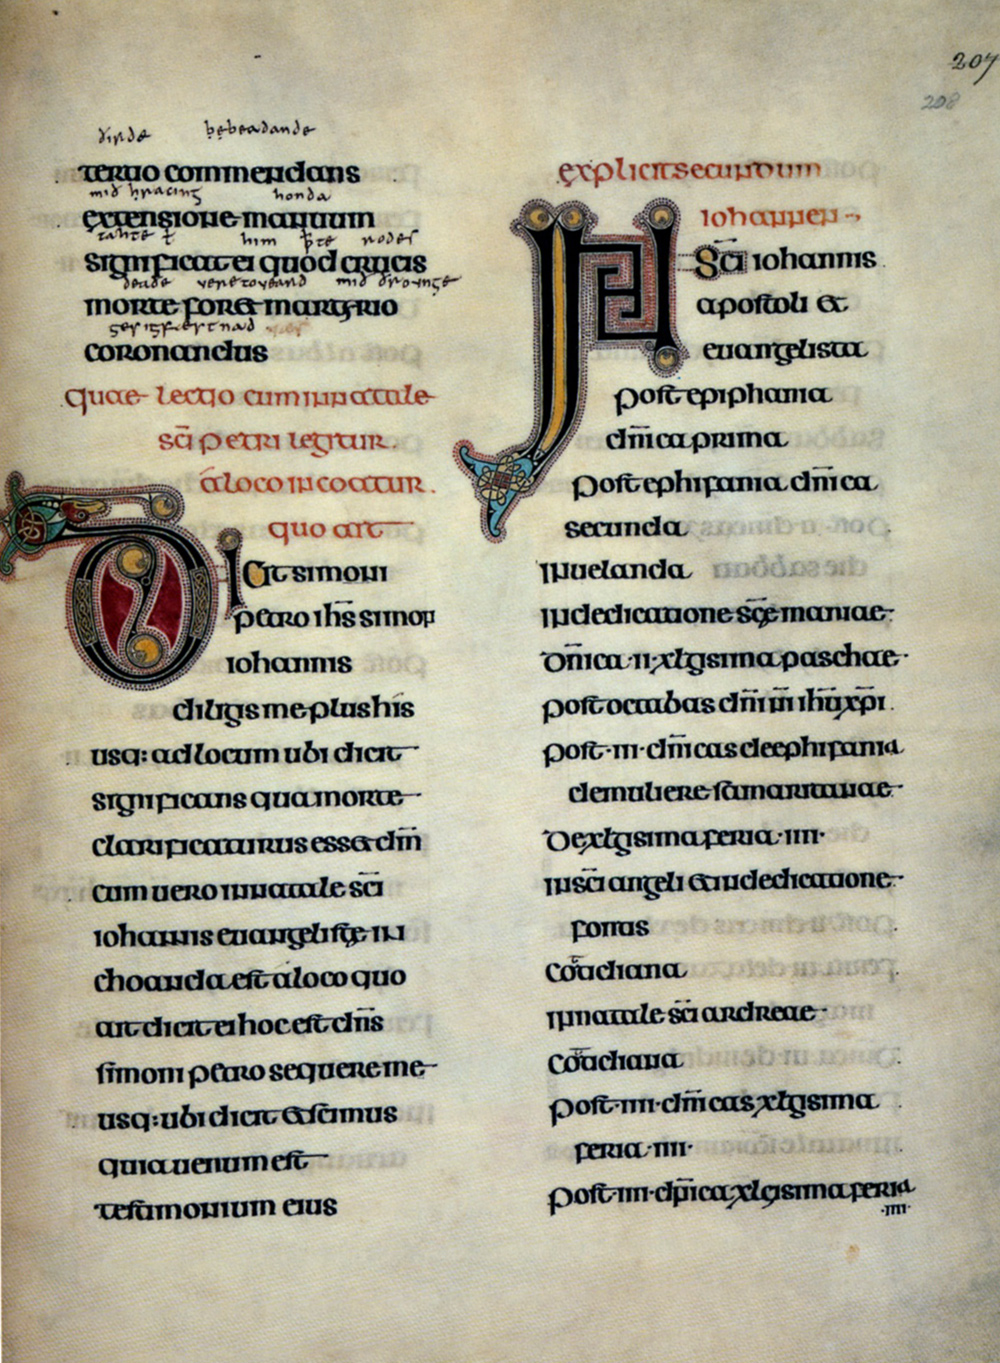 207
208
ðirde bebeadande
tertio commendans
mið hracing honda
extensione manuum
him þte rodes
significat ei quod crucis
deade
morte foret martyrio
coronandus
quae lectio cum in natale
sc̄i petri legitur
a loco incoatur.
quo ait
Dicit simoni
petro ih̄s simon
iohannis
diligis me plus his
usq: ad locum ubi dicit
significans qua morte
clarificaturus esset dm̄
cum uero in natale sc̄i
iohannis euangelistę in
choanda est a loco quo
ait dicit ei hoc est dn̄s
simoni petro sequere me
usq: ubi dicit et scimus
quia uerum est
testimonium eius
explicit secundum
iohannen
IN Sc̄i iohannis
apostoli et
euangelista
post epiphania
dm̄ica prima
post ephifania dm̄ica
secunda
In uelanda
In dedicatione sc̄ę mariae
Dm̄ica·II·xlgisima paschae·
post octabas dm̄i n̄i ih̄u xp̄i
post·III·dm̄icas de ephifania
de muliere samaritanae
De xlgisima feria·IIII·
In sc̄i angeli et in dedicatione
fontis
Cōtidiana
In natale sc̄i andreae·
Cōtidiana
post·IIII·dm̄icas xlgisima
feria·IIII·
post·IIII·dm̄ica xlgisima feria
·IIII·